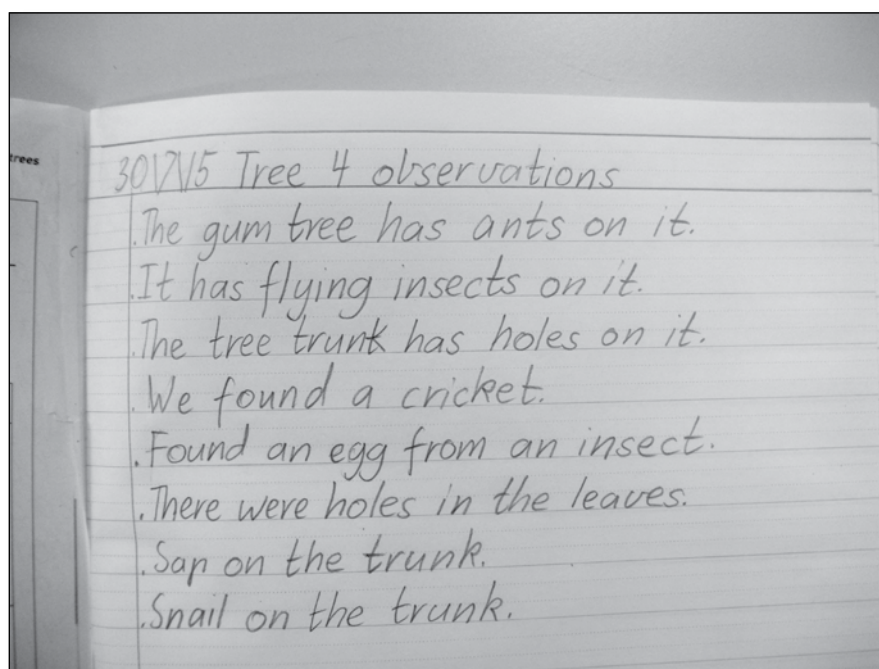 trees
30\7\15 Tree 4 observations
.The gum tree has ants on it.
.It has flying insects on it.
.The tree trunk has holes on it.
.We found a cricket.
.Found an egg from an insect.
.There were holes in the leaves.
.Sap on the trunk.
.Snail on the trunk.